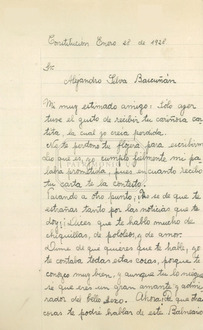 Constitucion Enero 28 de 1928.
Sr.
Alejandro Silva Bascuñán
Mi muy estimado amigo: Solo ayer
tuve el gusto de recibir tu cariñosa car
tita, la cual yo creia perdida.
No te perdono tu flojera para escribirme
dio que es, yo cumplo fielmente mi pa
labra prometida, pues en cuanto recibo
tu carta te la contesto.
Pasando a otro punto; Por se de que te
estrañas tanto por las noticias que te
doy; Dices que te hablo mucho de
chiquillas, de pololeos, de amor.
Dime de que quieres que te hable, yo
te contaba todas estas cosas, porque te
conozco muy bien, y aunque tu lo niegues
se que eres un gran amante y admi
rador del bello sexo. Ahora que otras
cosas te podré hablar de este Balneario